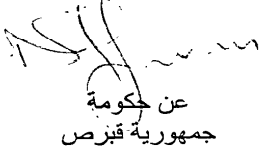 عن حكومة
جمهورية قبرص